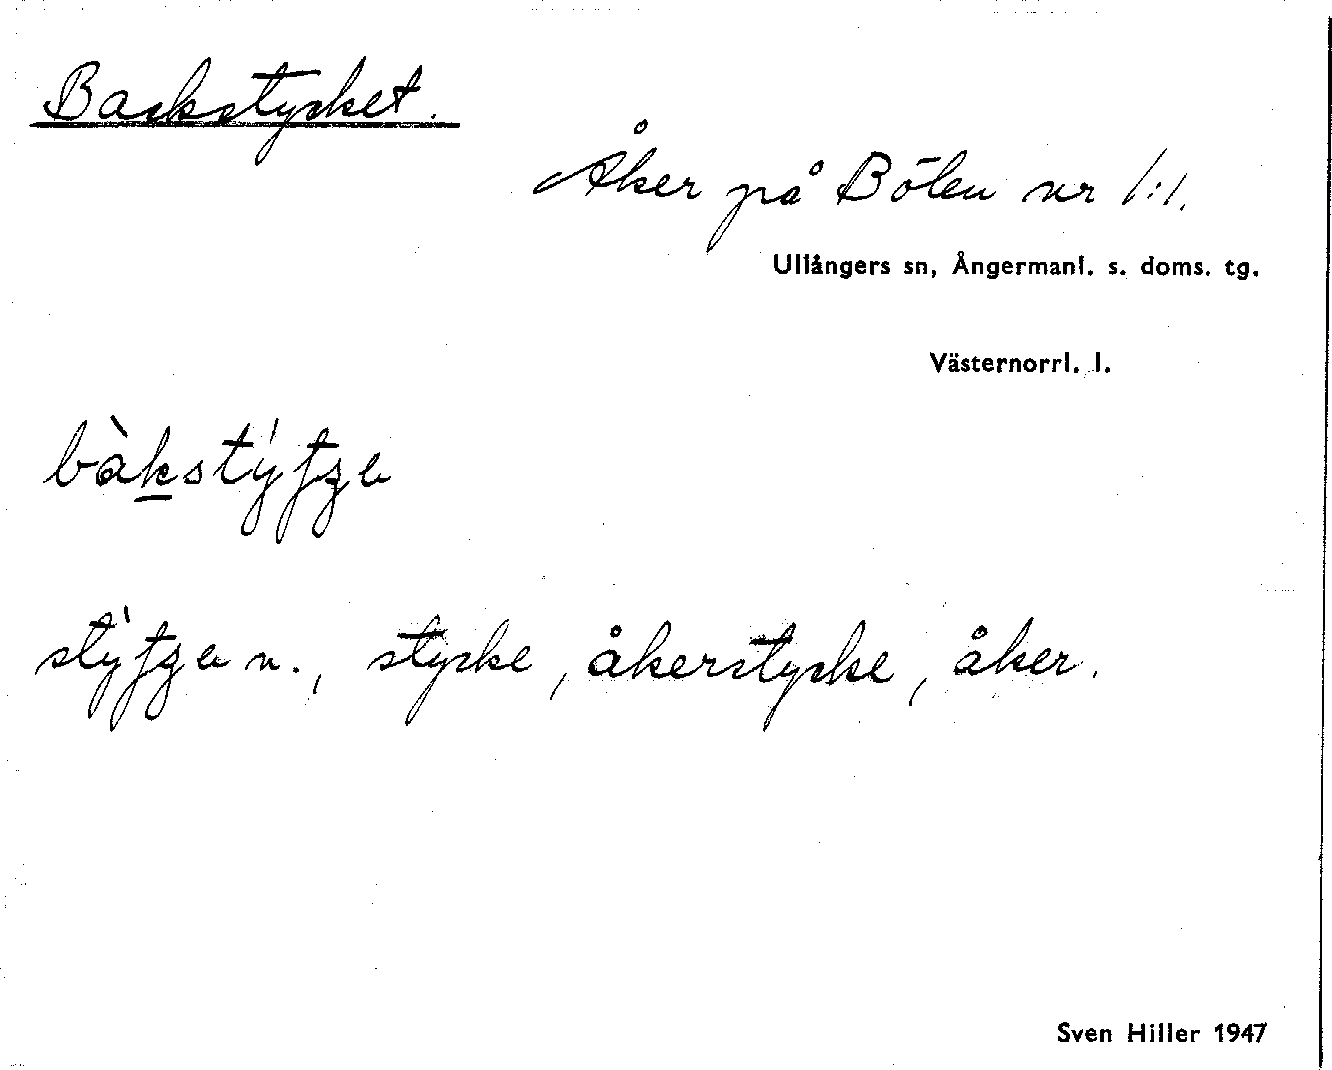 Backstycket.
Åker på Bölen nr 1:1.
Ullångers sn, Ångermanl. s. doms. tg.
Västernorrl. l.
stycke, åkerstycke, åker.
Sven Hiller 1947